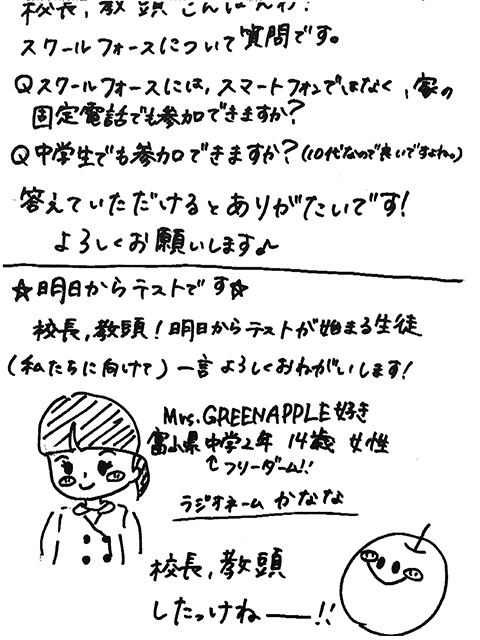 校長,教頭こんばんわ!
スクールフォースについて質問です。
Qスクールフォースには,スマートフォンではなく、家の
固定電話でも参加できますか?
Q中学生でも参加できますか?(10代なので良いですよね。)
答えていただけるとありがたいです!
よろしくお願いします♪
☆明日からテストです☆
校長,教頭!明日からテストが始まる生徒
(私たちに向けて)一言よろしくおねがいします!
Mrs.GREENAPPLE好き
富山県中学2年 14歳 女性
↑フリーダーム!!
ラジオネーム かなな
校長,教頭
したっけねー!!